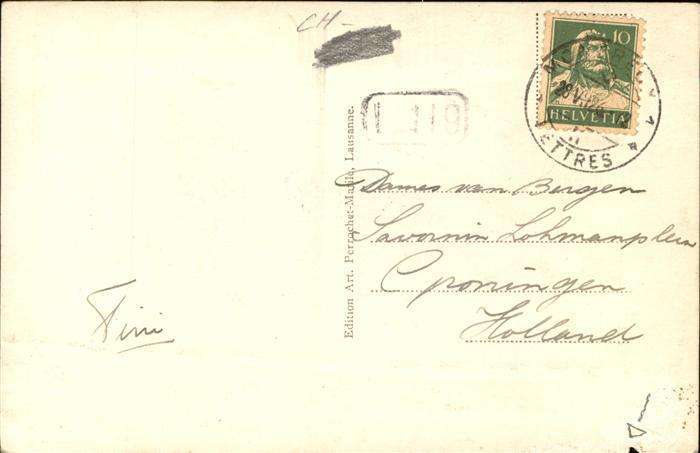 CH-
10
HELVETIA
LETTRES
Edition Art. Perrochet-Matile, Lausanne.
Dames van Bergen
Savornin Lohmanplein
Groningen
Holland
Fini